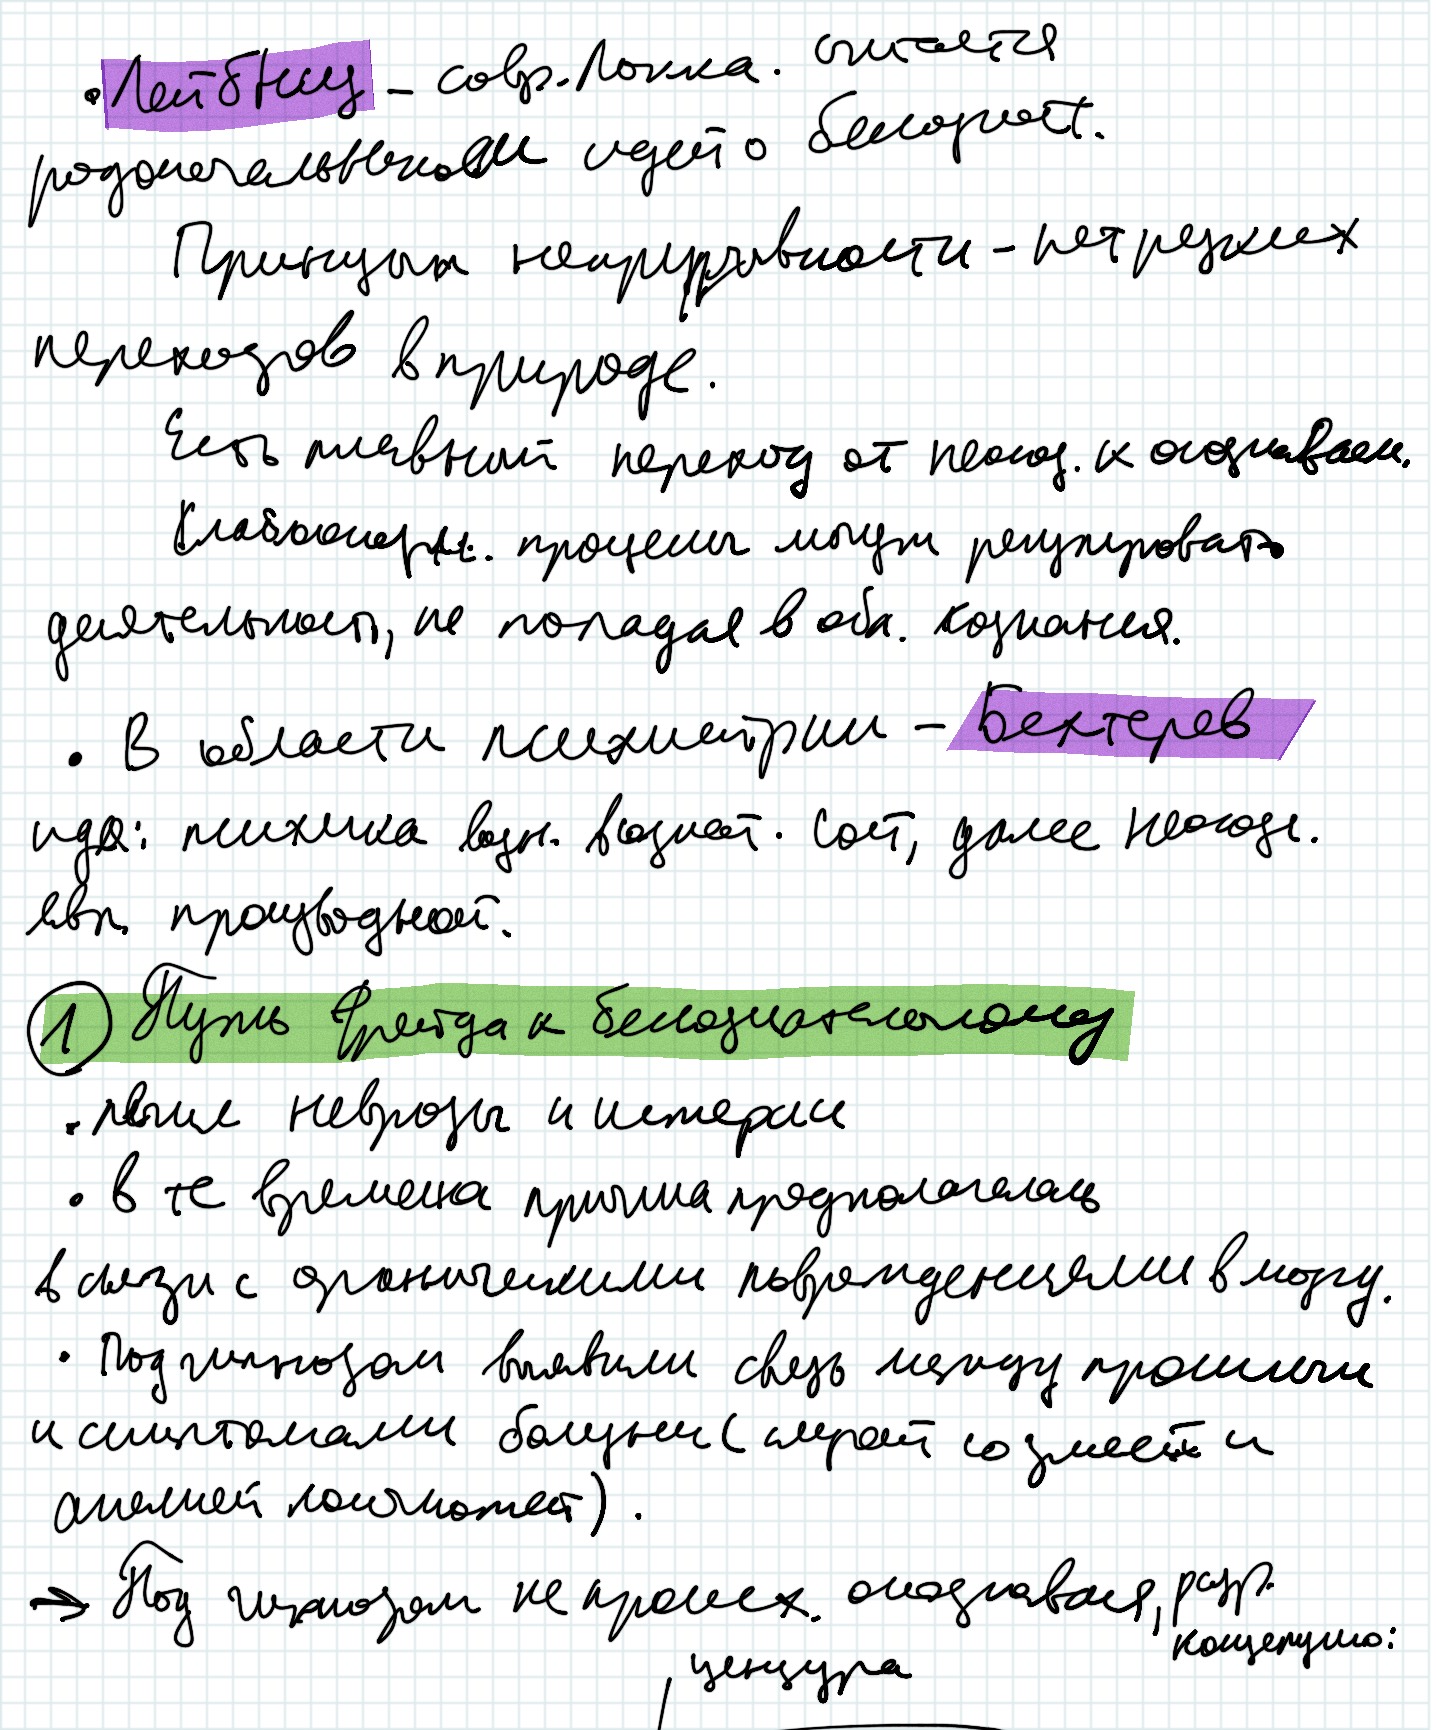 • Лейбниц – совр. Локка. считается
родоначальником идей о бессознат.
Принцип непрерывности – нет резких
переходов в природе.
Есть плавный переход от неосозн. к осознаваем.
процессы могут регулировать
деятельность, не попадая в обл. сознания.
• В области психиатрии – Бехтерев
идея: психика возн. сост, далее неосозн.
явл. производной.
① Путь Фрейда к бессознательному
• лечил неврозы и истерии
• в те времена причина предполагалась
в связи с органическими повреждениями в мозгу.
• Под гипнозом выявили связь между прошлым
и симптомами болезни (
).
→ Под гипнозом не происх. осознавания, разр.
концепцию:
цензура